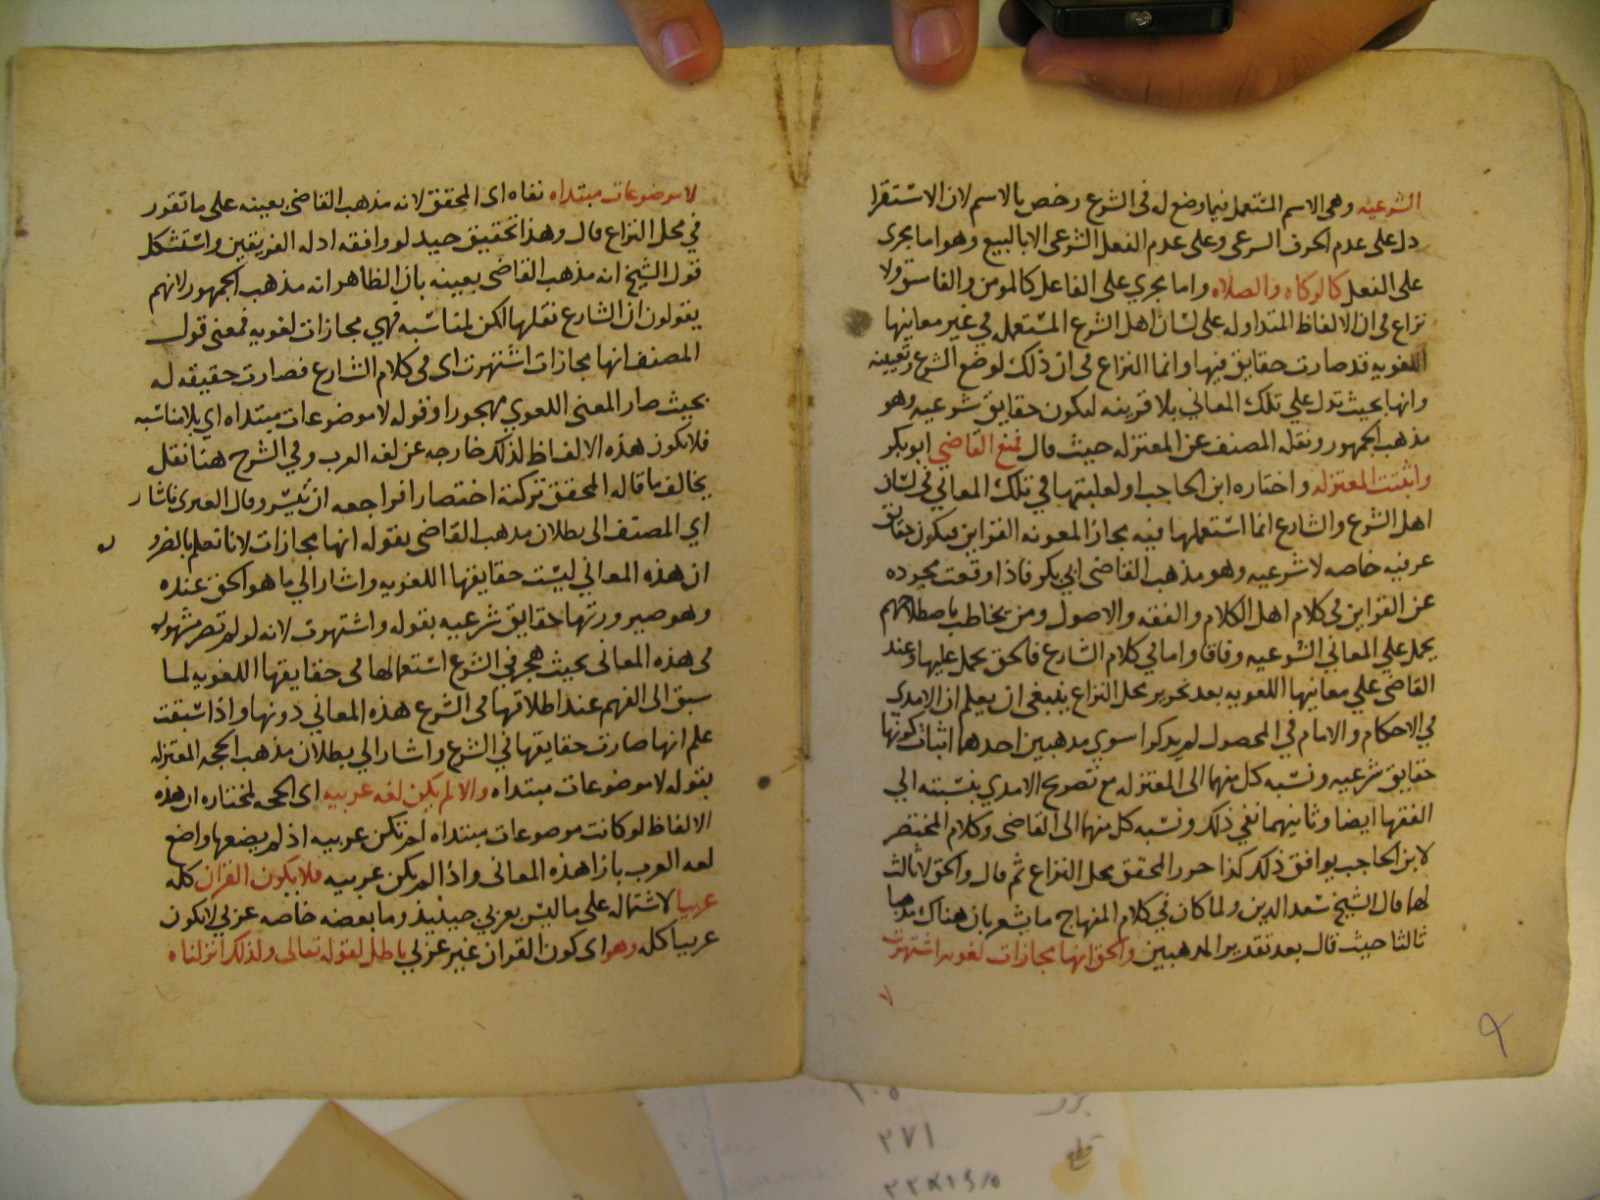 الشرعيه وهى الاسم المستعمل فيما وضع له فى الشرع وخص بالاسم لان الاستقرا
دل على عدم الحرف الشرعى وعلى عدم الفعل الشرعى الا بالبيع وهو اما يجرى
على الفعل كالزكاه والصلاه واما يجري على الفاعل كالمومن والفاسق ولا
نزاع فى ان الالفاظ المتداوله على لسان اهل الشرع المستعمله فى غير معانيها
اللغويه قد صارت حقايق فيها وانما النزاع فى ان ذلك لوضع الشرع وتعيينه
وانها بحيث تدل علي تلك المعاني بلا قرينه ليكون حقايق شرعيه وهو
مذهب الجمهور ونقله المصنف عن المعتزله حيث قال فمنع القاضي ابو بكر
واثبتت المعتزله واختاره ابن الحاجب او لغلبتها في تلك المعاني فى لسان
اهل الشرع والشارع انما استعملها فيه مجازا لمعونه القراين فيكون حقايق
عرفيه خاصه لا شرعيه وهو مذهب القاضى ابي بكر فاذا وقعت مجرده
عن القراين فى كلام اهل الكلام والفقه والاصول ومن يخاطب باصطلاحهم
يحمل علي المعاني الشرعيه وفاقا واما في كلام الشارع فالحق يحمل عليها وعند
القاضى علي معانيها اللغويه بعد تحرير محل النزاع ينبغى ان يعلم ان الامدى
في الاحكام والامام في المحصول لم يذكرا سوي مذهبين احدهما اثبات كونها
حقايق شرعيه ونسبه كل منهما الى المعتزله مع تصريح الامدي بنسبته الي
الفقها ايضا وثانيهما نفي ذلك ونسبه كل منهما الى القاضى وكلام المختصر
لابن الحاجب يوافق ذلك كذا حرر المحقق محل النزاع ثم قال والحق لا ثالث
لها قال الشيخ سعد الدين ولما كان في كلام المنهاج ما يشعر بان هناك مذهبا
ثالثا حيث قال بعد تقدير المذهبين والحق انها مجازات لغويه اشتهرت
لا موضوعات مبتداه نفاه اى المحقق لانه مذهب القاضى بعينه على ما تقرر
في محل النزاع قال وهذا تحقيق جيد لو وافقه ادله الفريقين واستشكل
قول الشيخ انه مذهب القاضى بعينه بان الظاهر انه مذهب الجمهور لانهم
يقولون ان الشارع نقلها لكن لمناسبه فهي مجازات لغويه فمعنى قول
المصنف انها مجازات اشتهرت اى فى كلام الشارع فصارت حقيقه له
بحيث صار المعنى اللغوي مهجورا وقوله لا موضوعات مبتداه اي بلا مناسبه
فلا يكون هذه الالفاظ لذلك خارجه عن لغه العرب وفي الشرح هنا نقل
يخالف ما قاله المحقق تركته اختصارا فراجعه ان تيسر وقال العبرى فاشار
اي المصنف الى بطلان مذهب القاضى بقوله انها مجازات لانا نعلم بالضرو
ان هذه المعاني ليست حقايقها اللغويه واشار الي ما هو الحق عنده
وهو صيرورتها حقايق شرعيه بقوله واشتهرت لانه لو لم تصر مشهوره
فى هذه المعانى بحيث هجر في الشرع استعمالها فى حقايقها اللغويه لما
سبق الى الفهم عند اطلاقها فى الشرع هذه المعاني دونها واذا سبقت
علم انها صارت حقايقها في الشرع واشار الي بطلان مذهب المعتزله
بقوله لا موضوعات مبتداه والا لم يكن لغه عربيه اى الحجه لمختاره ان هذه
الالفاظ لو كانت موضوعات مبتداه لم تكن عربيه اذ لم يضعها واضع
لغه العرب بازا هذه المعانى واذا لم يكن عربيه فلا يكون القران كله
عربيا لاشتماله على ما ليس بعربي حينيذ وما بعضه خاصه عربي لا يكون
عربيا كله وهو اى كون القران غير عربي باطل لقوله تعالى وكذلك انزلناه
٢٧١